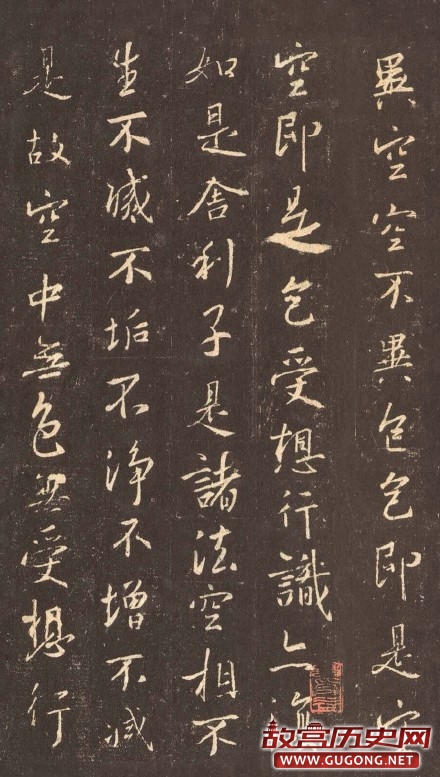 異空空不異色色即是空
空即是色受想行識亦復
如是舍利子是諸法空相不
生不滅不垢不淨不增不減
是故空中無色無受想行
故宫历史网
WWW.GUGONG.NET